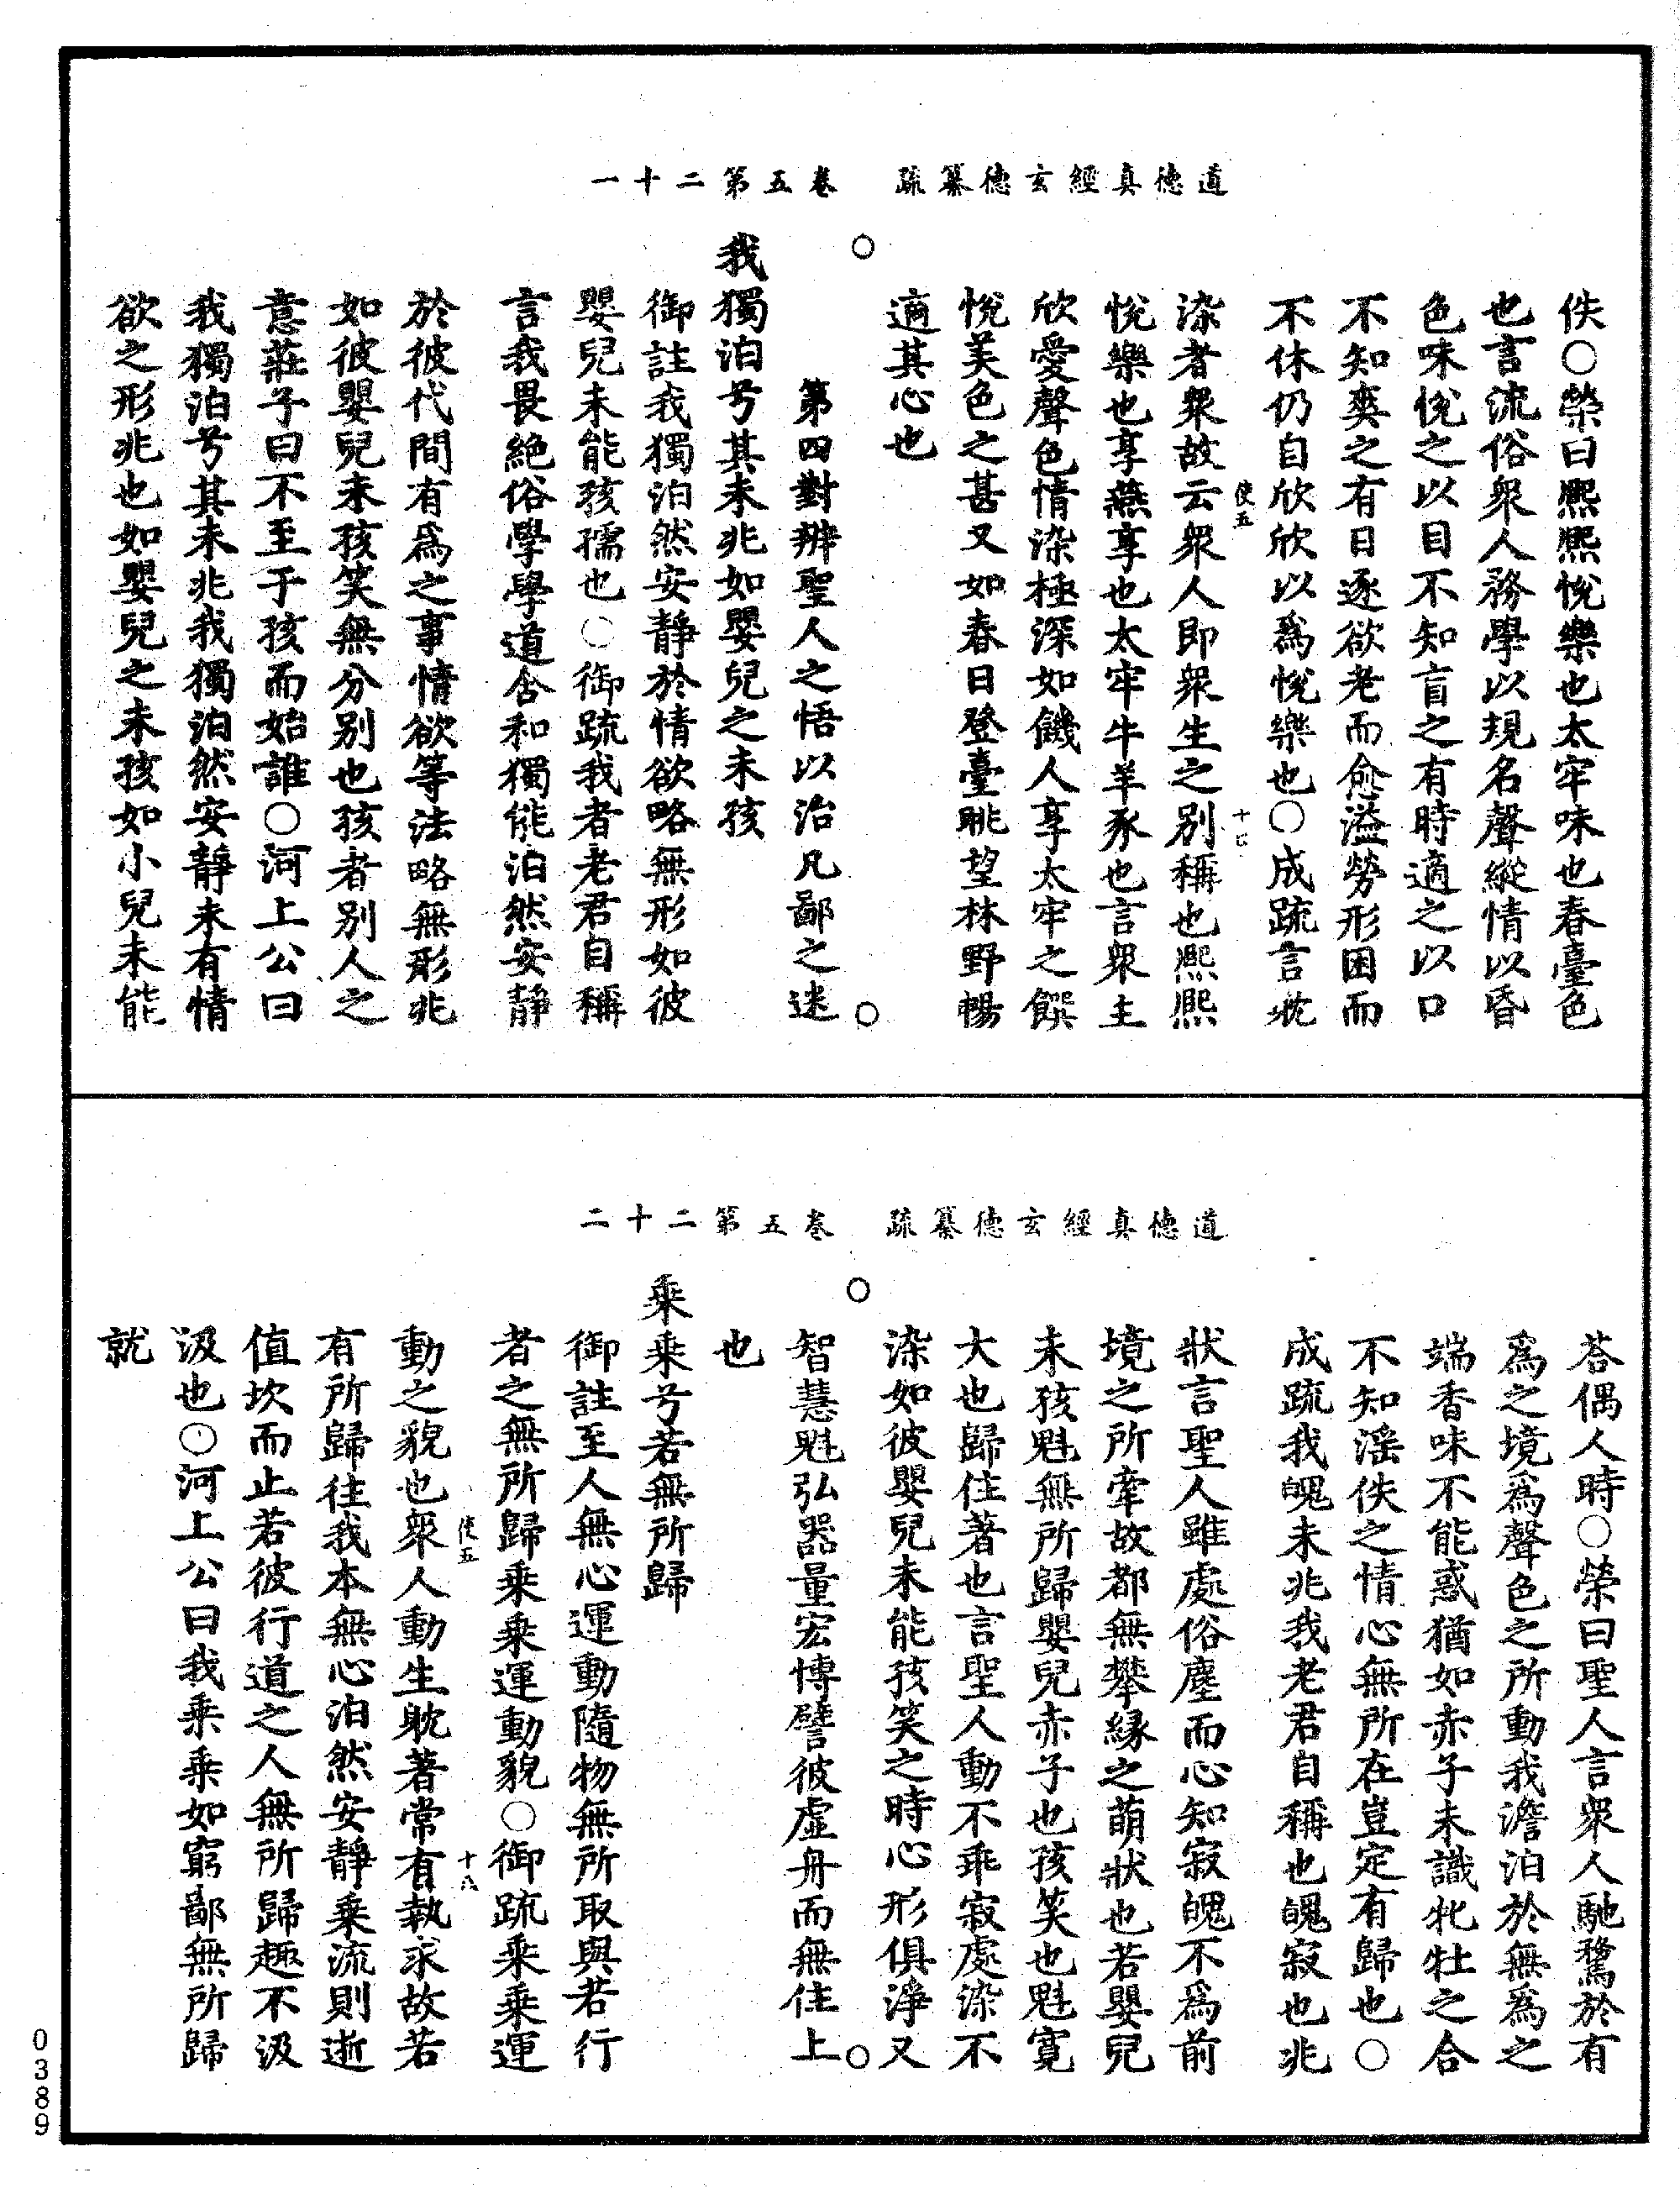 道德真經玄德纂疏　卷五第二十一
佚○榮曰熙熙悅樂也太牢味也春臺色
也言流俗衆人務學以規名聲縱情以昏
色味悅之以目不知盲之有時適之以口
不知爽之有日逐欲老而愈溢勞形困而
不休仍自欣欣以爲悅樂也○成疏言躭
使五　十七
染者衆故云衆人即衆生之別稱也熙熙
悅樂也享燕享也太牢牛羊豕也言衆主
欣愛聲色情染極深如饑人享太牢之饌
悅美色之甚又如春日登臺眺望林野暢
適其心也
第四對辨聖人之悟以治凡鄙之迷
我獨泊兮其未兆如嬰兒之未孩
御註我獨泊然安靜於情欲略無形如彼
嬰兒未能孩孺也○御疏我者老君自稱
言我畏絶俗學學道含和獨能泊然安靜
於彼代間有爲之事情欲等法略無形兆
如彼嬰兒未孩笑無分別也孩者別人之
意莊子曰不至于孩而始誰○河上公曰
我獨泊兮其未兆我獨泊然安靜未有情
欲之形兆也如嬰兒之未孩如小兒未能
道德真經玄德纂疏　卷五第二十二
荅偶人時○榮曰聖人言衆人馳騖於有
爲之境爲聲色之所動我澹泊於無爲之
端香味不能惑猶如赤子未識牝牡之合
不知滛佚之情心無所在豈定有歸也○
成疏我魄未兆我老君自稱也魄寂也兆
狀言聖人雖處俗塵而心知寂魄不爲前
境之所牽故都無攀緣之萌狀也若嬰兒
未孩魁無所歸嬰兒赤子也孩笑也魁寬
大也歸住著也言聖人動不乖寂處染不
染如彼嬰兒未能孩笑之時心形俱淨又
智慧魁弘器量宏博譬彼虛舟而無住上
也
乘乘兮若無所歸
御註至人無心運動隨物無所取與若行
者之無所歸乘乘運動貌○御疏乘乘運
使五　十八
動之貌也衆人動生躭著常有執求故若
有所歸往我本無心泊然安靜乘流則逝
值坎而止若彼行道之人無所歸趣不汲
汲也○河上公曰我乘乘如窮鄙無所歸
就
0389